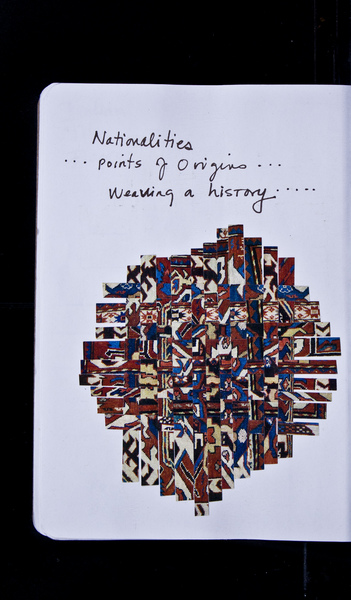 Nationalities
... points of Origins ...
Weaving a history .....